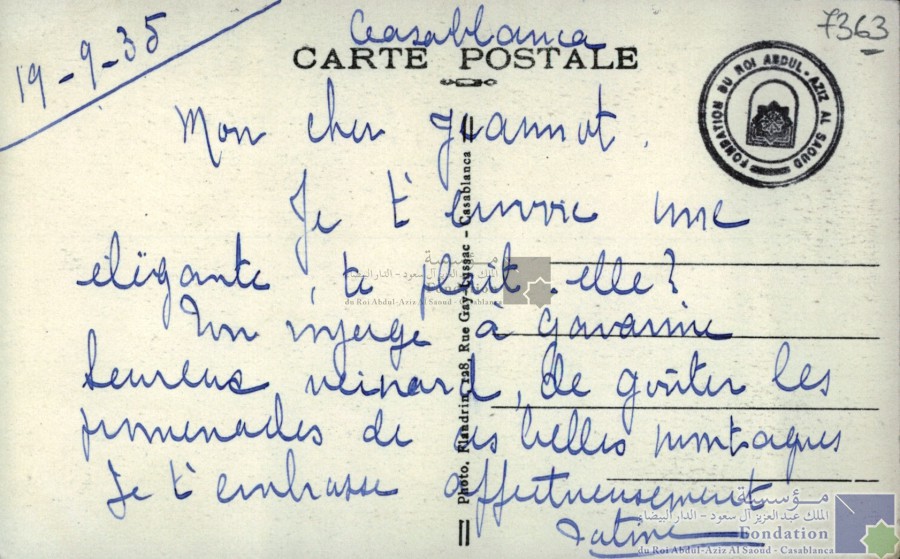 Casablanca
7363
19-9-35
CARTE POSTALE
FONDATION DU ROI ABDUL-AZIZ AL SAOUD
Mon cher Jeannot.
Je t'envoie une
élégante, te plait-elle?
Mon à Gavarnie
heureux veinard, de goûter les
promenades de ces belles montagnes
Je t'embrasse affectueusement
Tatine
Photo. Flandrin, 128, Rue Gay-Lussac - Casablanca
مؤسسة
الملك عبد العزيز آل سعود - الدار البيضاء
Fondation
du Roi Abdul-Aziz Al Saoud - Casablanca
مؤسسة
الملك عبد العزيز آل سعود - الدار البيضاء
Fondation
du Roi Abdul-Aziz Al Saoud - Casablanca